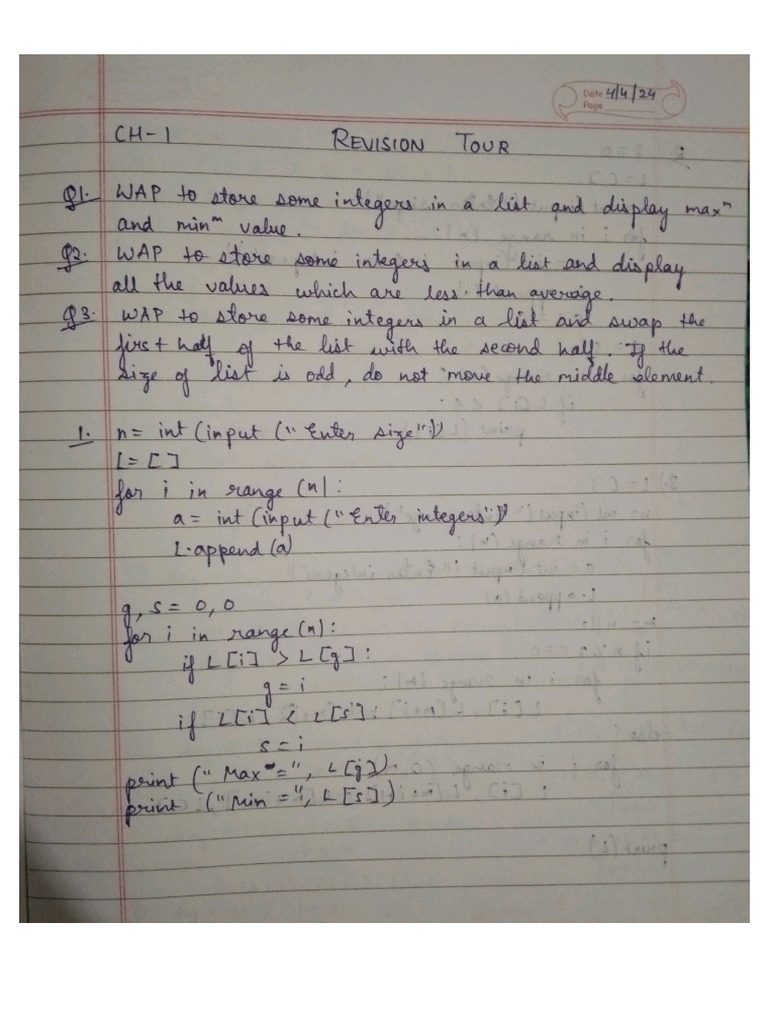 Date 4/4/24
Page
CH-1 REVISION TOUR
Q1. WAP to store some integers in a list and display maxᵐ
and minᵐ value.
Q2. WAP to store some integers in a list and display
all the values which are less than average.
Q3. WAP to store some integers in a list and swap the
first half of the list with the second half. If the
size of list is odd, do not move the middle element.
1. n = int (input ("Enter size"))
L = [ ]
for i in range (n):
a = int (input ("Enter integers"))
L.append (a)
g, s = 0, 0
for i in range (n):
if L[i] > L[g]:
g = i
if L[i] < L[s]:
s = i
print ("Maxᵐ=", L[g])
print ("Min =", L[s])